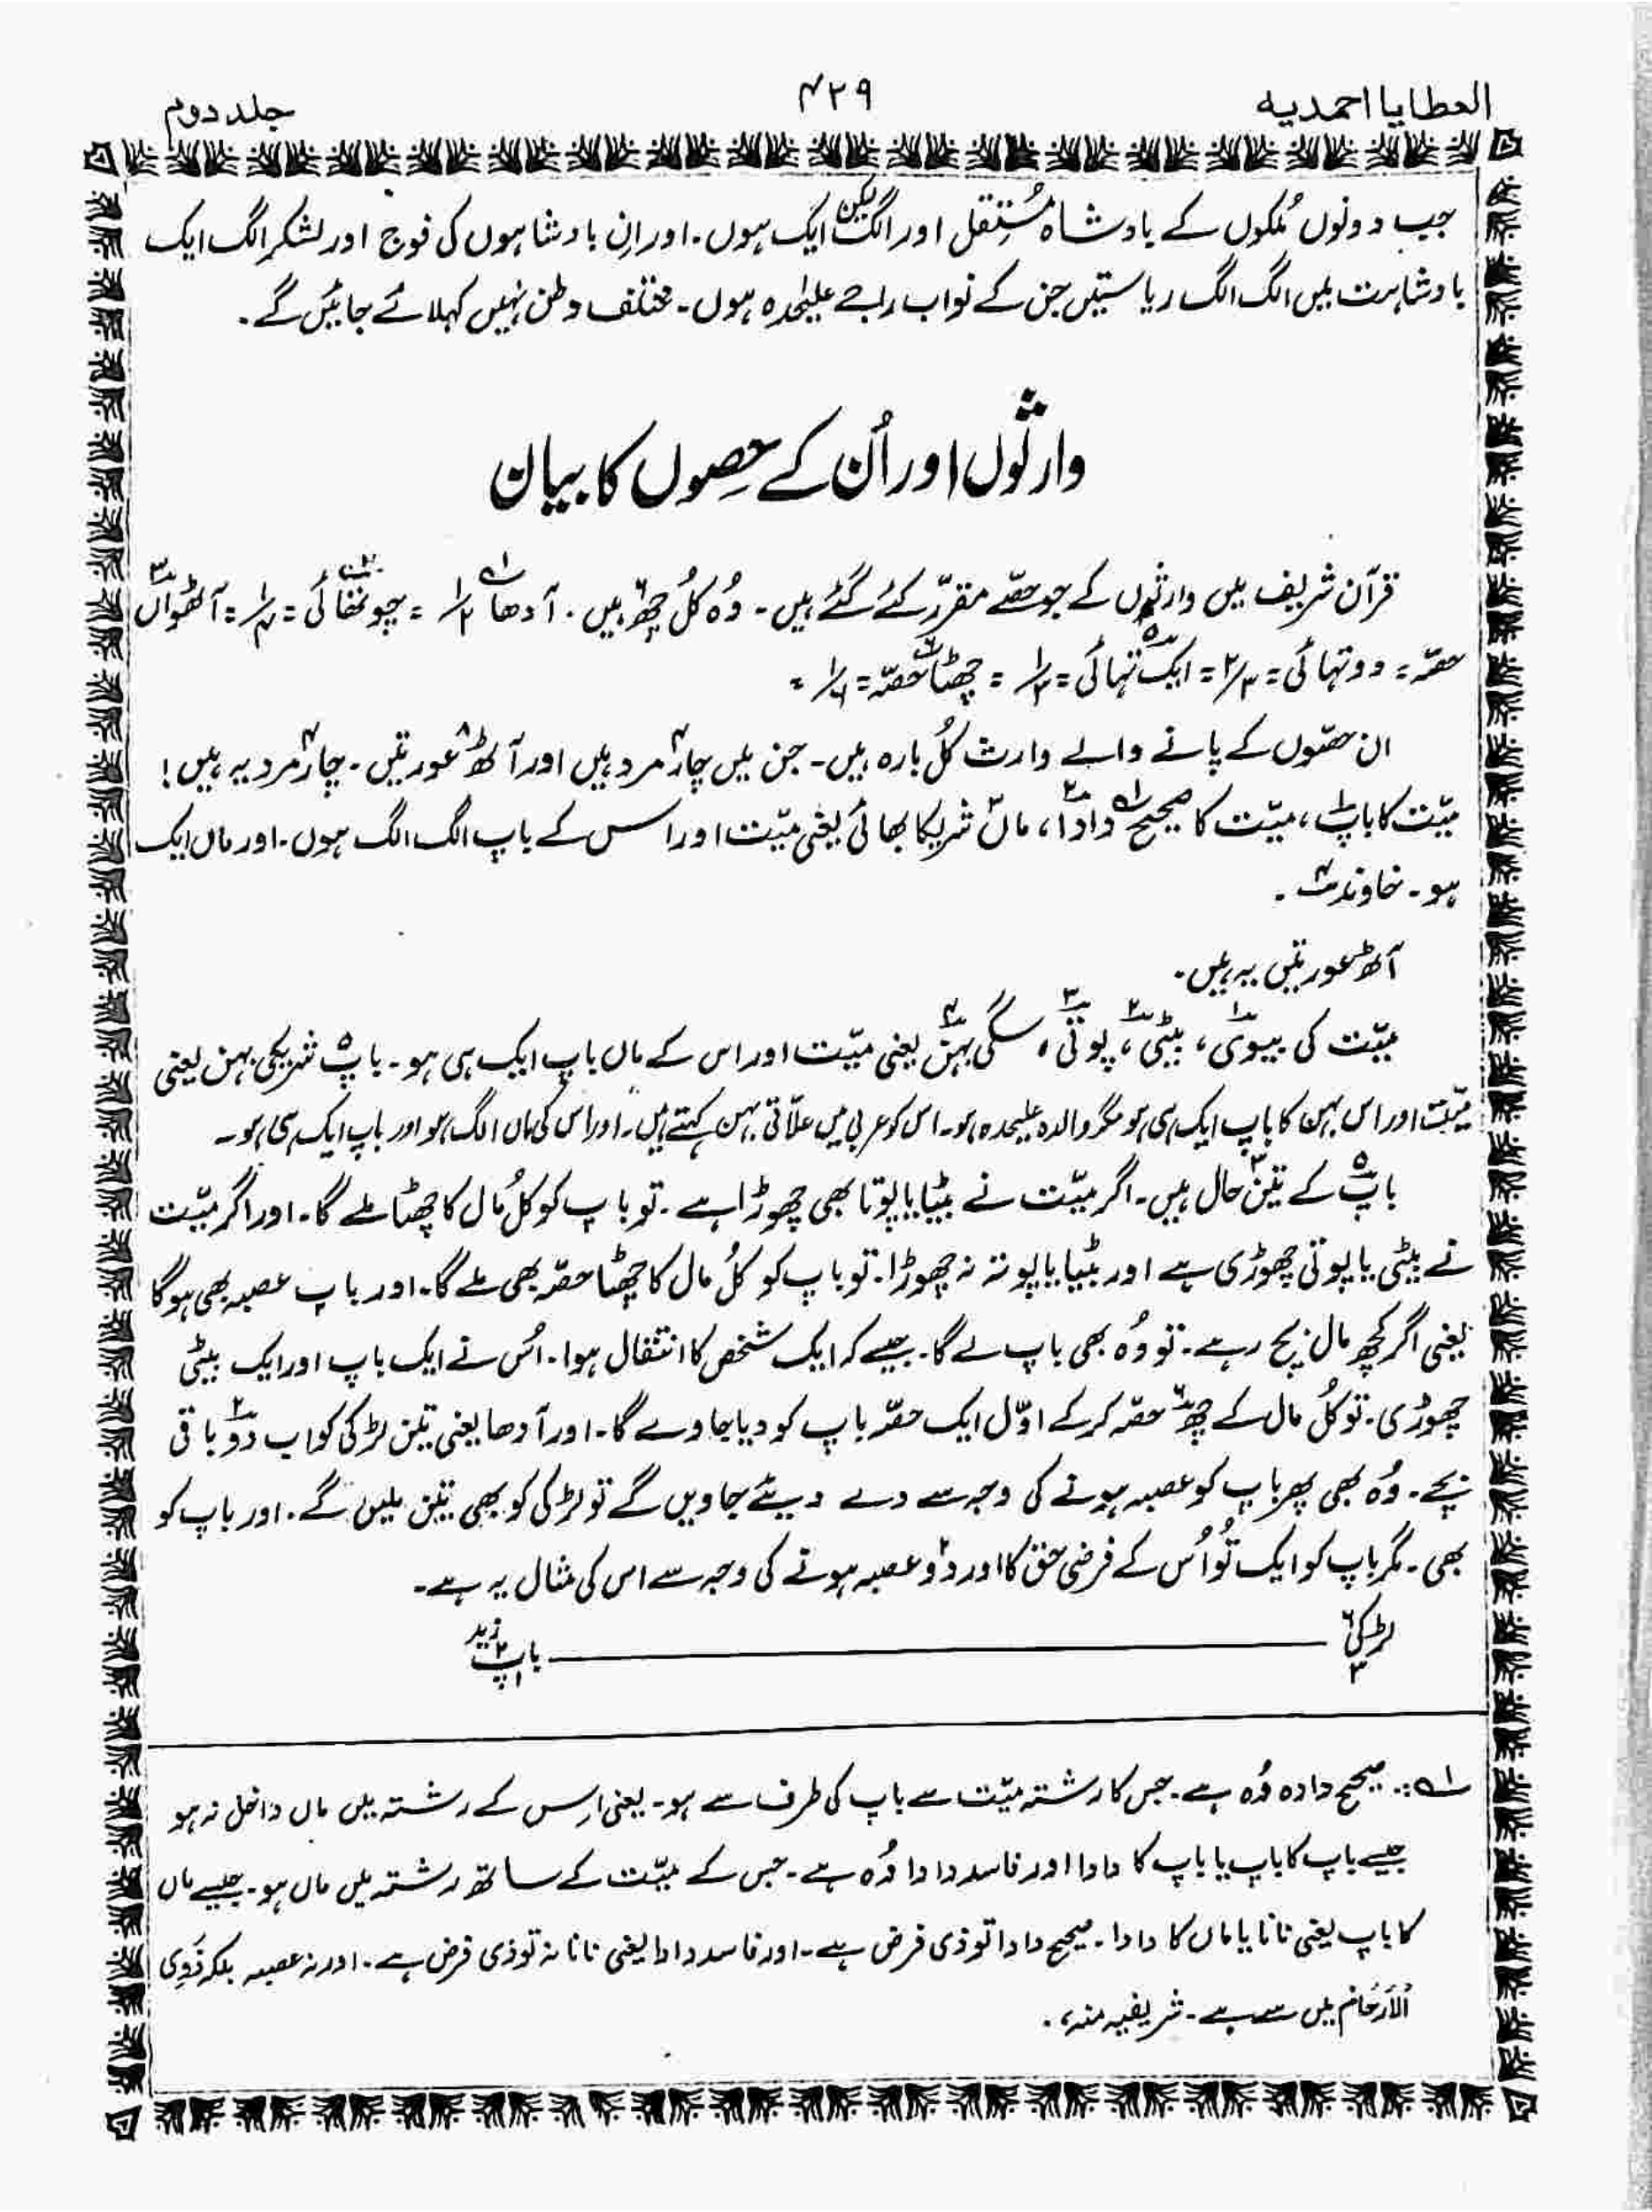 العطایا احمدیہ
۴۲۹
جلد دوم
جب دونوں مُلکوں کے بادشاہ مُستقل اور الگ لیکن ایک ہوں۔ اور اِن بادشاہوں کی فوج اور لشکر الگ ایک
بادشاہت میں الگ الگ ریاستیں جن کے نواب راجے علیٰحدہ ہوں۔ مختلف وطن نہیں کہلائے جائیں گے۔
وارثوں اور اُن کے حِصوں کا بیان
قرآن شریف میں وارثوں کے جو حصّے مقررّ کئے گئے ہیں۔ وُہ کُل چھ ۶ ہیں۔ آدھا ۱ ۱/۲ = چوتھائی ۲ = ۱/۴ = آٹھواں ۳
حصّہ = دو تہائی = ۲/۳ = ایک تہائی ۵ = ۱/۳ = چھٹا ۶ حصّہ = ۱/۶ =
ان حصّوں کے پانے والے وارث کُل بارہ ہیں۔ جن میں چار ۴ مرد ہیں اور آٹھ ۸ عورتیں۔ چار ۴ مرد یہ ہیں!
میّت کا باپ ۱، میّت کا صحیح ۱ دادا ۲، ماں ۳ شریکا بھائی یعنی میّت اور اس کے باپ الگ الگ ہوں۔ اور ماں ایک
ہو۔ خاوند ۴۔
آٹھ عورتیں یہ ہیں۔
میّت کی بیوی ۱، بیٹی ۲، پوتی ۳، سگی بہن ۴ یعنی میّت اور اس کے ماں باپ ایک ہی ہو۔ باپ ۵ شریکی بہن یعنی
میّت اور اس بہن کا باپ ایک ہی ہو مگر والدہ علیحدہ ہو۔ اس کو عربی میں علّاتی بہن کہتے ہیں۔ اور اس کی ماں الگ ہو اور باپ ایک ہی ہو۔
باپ ۵ کے تین ۳ حال ہیں۔ اگر میّت نے بیٹا یا پوتا بھی چھوڑا ہے۔ تو باپ کو کُل مال کا چھٹا ملے گا۔ اور اگر میّت
نے بیٹی یا پوتی چھوڑی ہے اور بیٹا یا پوتہ نہ چھوڑا۔ تو باپ کو کُل مال کا چھٹا حصّہ بھی ملے گا۔ اور باپ عصبہ بھی ہوگا
یعنی اگر کچھ مال بچ رہے۔ تو وُہ بھی باپ لے گا۔ جیسے کہ ایک شخص کا انتقال ہوا۔ اُس نے ایک باپ اور ایک بیٹی
چھوڑی۔ تو کُل مال کے چھ ۶ حصّہ کر کے اوّل ایک حصّہ باپ کو دیا جاوے گا۔ اور آدھا یعنی تین لڑکی کو اب دو ۲ باقی
بچے۔ وُہ بھی پھر باپ کو عصبہ ہونے کی وجہ سے دے دیئے جاویں گے تو لڑکی کو بھی تین ملیں گے۔ اور باپ کو
بھی۔ مگر باپ کو ایک تُو اُس کے فرضی حق کا اور دو ۲ عصبہ ہونے کی وجہ سے اس کی مثال یہ ہے۔
لڑکی ۶ ۳ ــــــــــــ باپ زید ۲ ۱
۱؎: صحیح دادہ وُہ ہے۔ جس کا رشتہ میّت سے باپ کی طرف سے ہو۔ یعنی اِس کے رشتہ میں ماں داخل نہ ہو
جیسے باپ کا باپ یا باپ کا دادا اور فاسد دادا وُہ ہے۔ جس کے میّت کے ساتھ رشتہ میں ماں ہو۔ جیسے ماں
کا باپ یعنی نانا یا ماں کا دادا۔ صحیح دادا تو ذی فرض ہے۔ اور فاسد دادا یعنی نانا نہ تو ذی فرض ہے۔ اور نہ عصبہ بلکہ ذَوِی
الْاَرْحَام میں سے ہے۔ شریفیہ منہ،۔